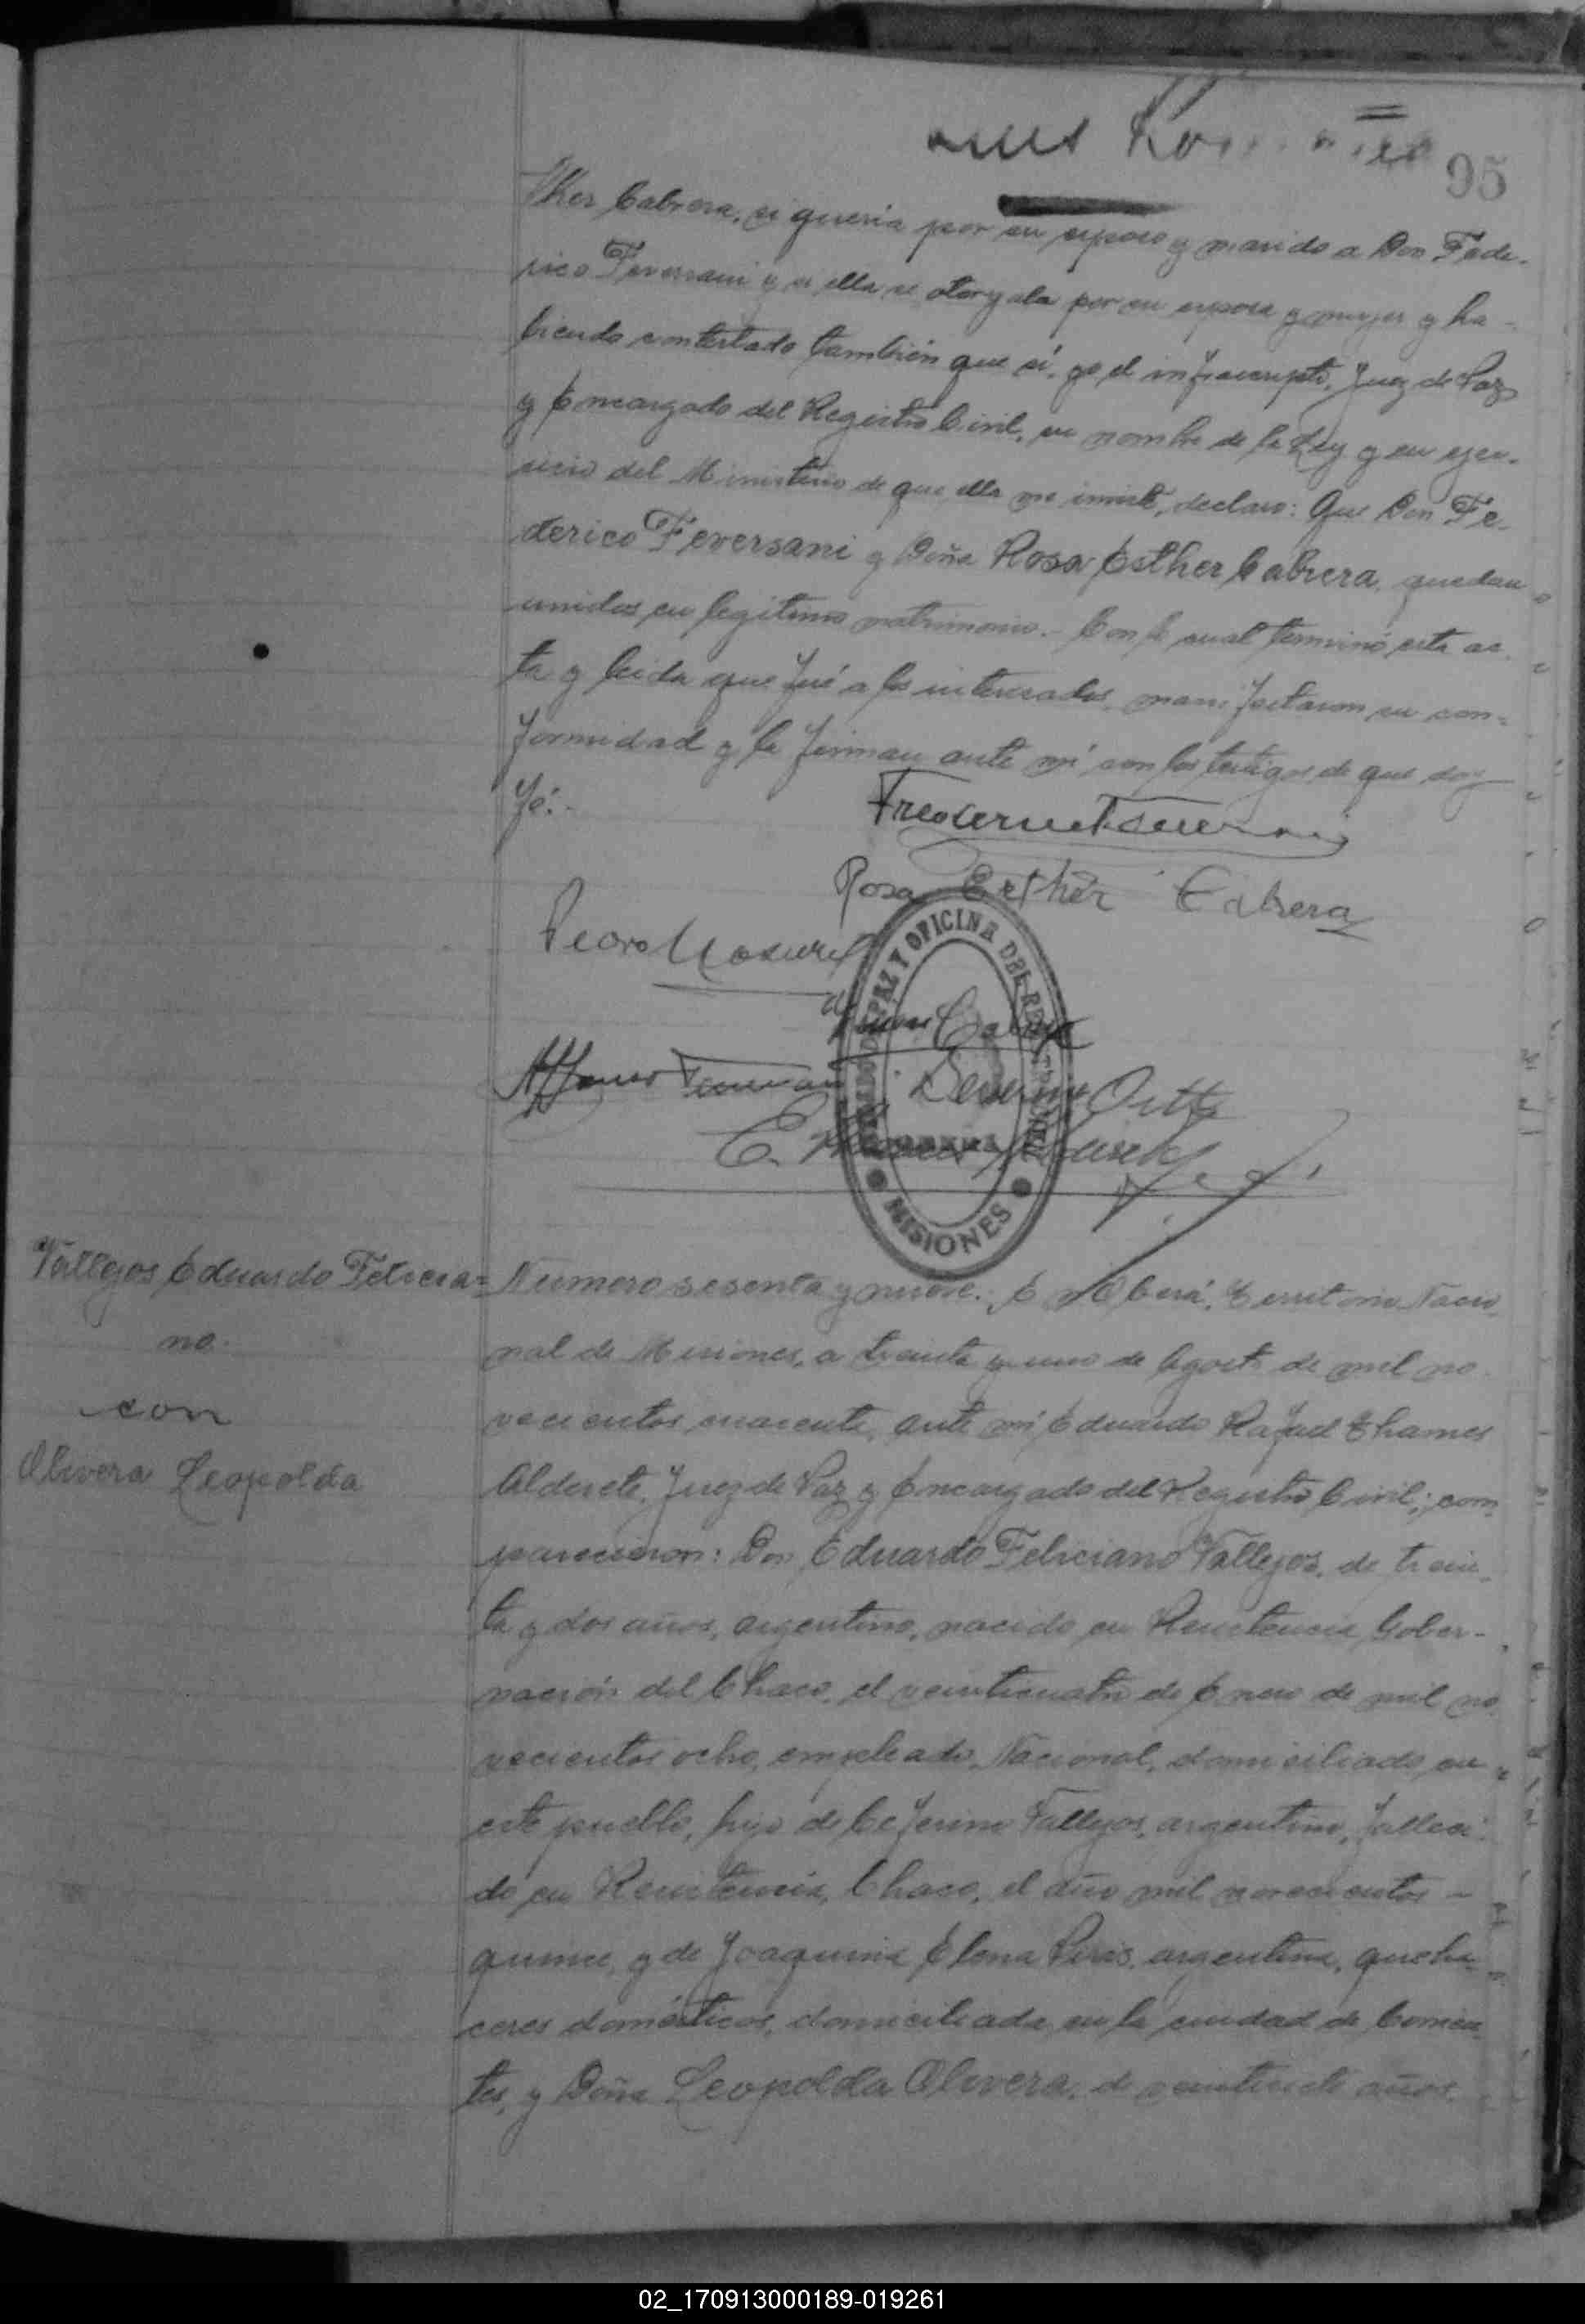 95
ther Cabrera, si queria por su esposo y marido a Don Fede-
rico Feversani y si ella se otorgaba por su esposa y mujer y ha-
biendo contestado también que sí, yo el infrascripto, Juez de Paz
y Encargado del Registro Civil, en nombre de la Ley y en ejer-
cicio del Ministerio de que ella me inviste, declaro: Que Don Fe-
derico Feversani y Doña Rosa Esther Cabrera, quedan
unidos en legitimo matrimonio.- Con lo cual terminó esta ac-
ta y leida que fué a los interesados, manifestaron su con-
formidad y la firman ante mí con los testigos de que doy
fé:-
Rosa Esther Cabrera
Pedro
PAZ Y OFICINA DEL
MISIONES
Vallejos Eduardo Felicia-
no.
con
Olivera Leopolda
Número sesenta y nueve. En Oberá, Territorio Nacio-
nal de Misiones, a treinta y uno de Agosto de mil no-
vecientos cuarenta, ante mí Eduardo Rafael Thames
Alderete, Juez de Paz y Encargado del Registro Civil; com-
parecieron: Don Eduardo Feliciano Vallejos, de trein-
ta y dos años, argentino, nacido en Resistencia, Gober-
nación del Chaco, el veinticuatro de Enero de mil no-
vecientos ocho, empleado Nacional, domiciliado en
este pueblo, hijo de Ceferino Vallejos, argentino, falleci-
do en Resistencia, Chaco, el año mil novecientos -
quince, y de Joaquina Elena Piris, argentina, queha-
ceres domésticos, domiciliada en la ciudad de Corrien-
tes, y Doña Leopolda Olivera, de veintisiete años,
02_170913000189-019261